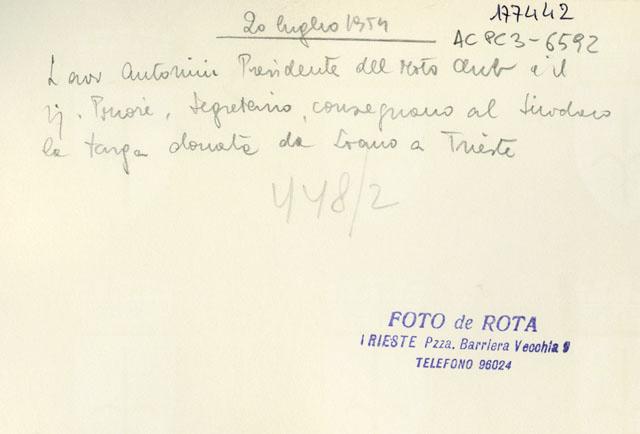 177442
20 luglio 1954
ACPC3-6592
L'avv Antonini Presidente del Moto Club e il
Segretario, consegnano al Sindaco
la targa donata da a Trieste
448/2
FOTO de ROTA
TRIESTE Pzza. Barriera Vecchia 9
TELEFONO 96024